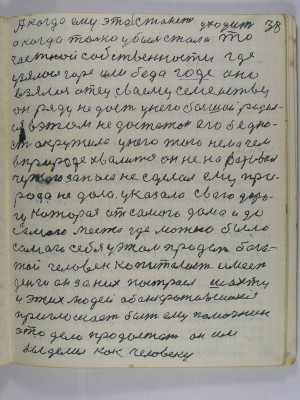 А когда ему это станет уходит 38
а когда только убыль стала то
частной собственности где
узялось горе или беда годе оно
взялся отец сваему семействы
он ряду не даст у него большой радел
в этом не достаток его бедно-
ст окружила у него того нела чем
в природе хвалится он не на
чужого запаса не сделал ему при-
рода не дала, указала сваго доро-
гу которая от самого дома и до
самого места где можно было
самого себя у этом продать бога-
той человек капиталист имеет
денги он за них построил шахту
и этих людей обанкротившихся
приглашает быть ему помочник
это дело продолжат он им
выделил как человеку